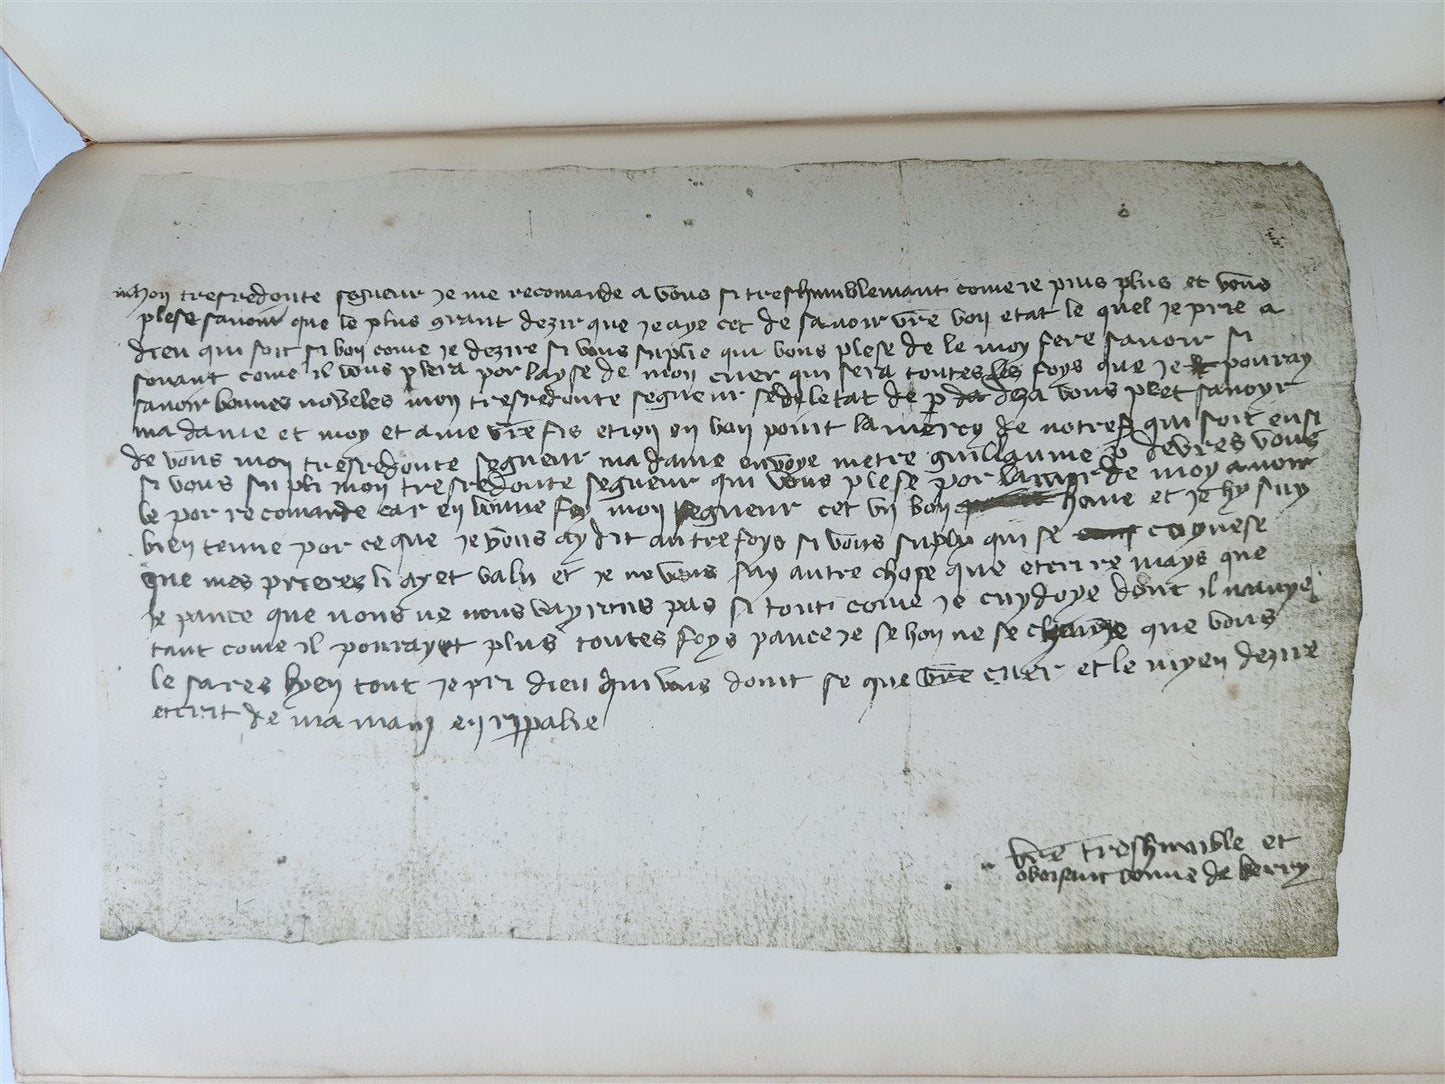 mon tresredoute segneur je me recomande a vous si treshumblemant come je puis plus et vous
plese savoir que le plus grant dezir que je aye cet de savoir vre bon etat le quel je prie a
dieu qui soit si bon come je dezire si vous suplie qui vous plese de le moy fere savoir si
sovant come il vous plera por layse de mon cuer qui sera toutes les foys que je pouray
savoir bonnes noveles mon tresredoute segneur se de letat de p desa vous plet savoyr
ma dame et moy et ame vre fis etion en bon point la mercy de notre qui soit ensi
de vous mon tresredoute segneur ma dame envoye metre guillaume p devres vous
si vous supli mon tresredoute segneur qui vous plese por lamor de moy avoir
le por recomande car en bonne foy mon segneur cet un bon home et je hy suy
bien tenue por ce que je vous ay dit autre foys si vous suply qui se conese
que mes prieres li ayet valu et je ne vous say autre chose que ecrire mays que
je pance que nous ne nous vayrons pas si tout come je cuydoye dont il
tant come il pourayet plus toutes foys pance je se hon ne se change que vous
le sares byen tout je pri dieu qui vous doint se que vre cuer et le myen dezire
ecrit de ma main en
vre treshumble et
obeisant bonne de berry